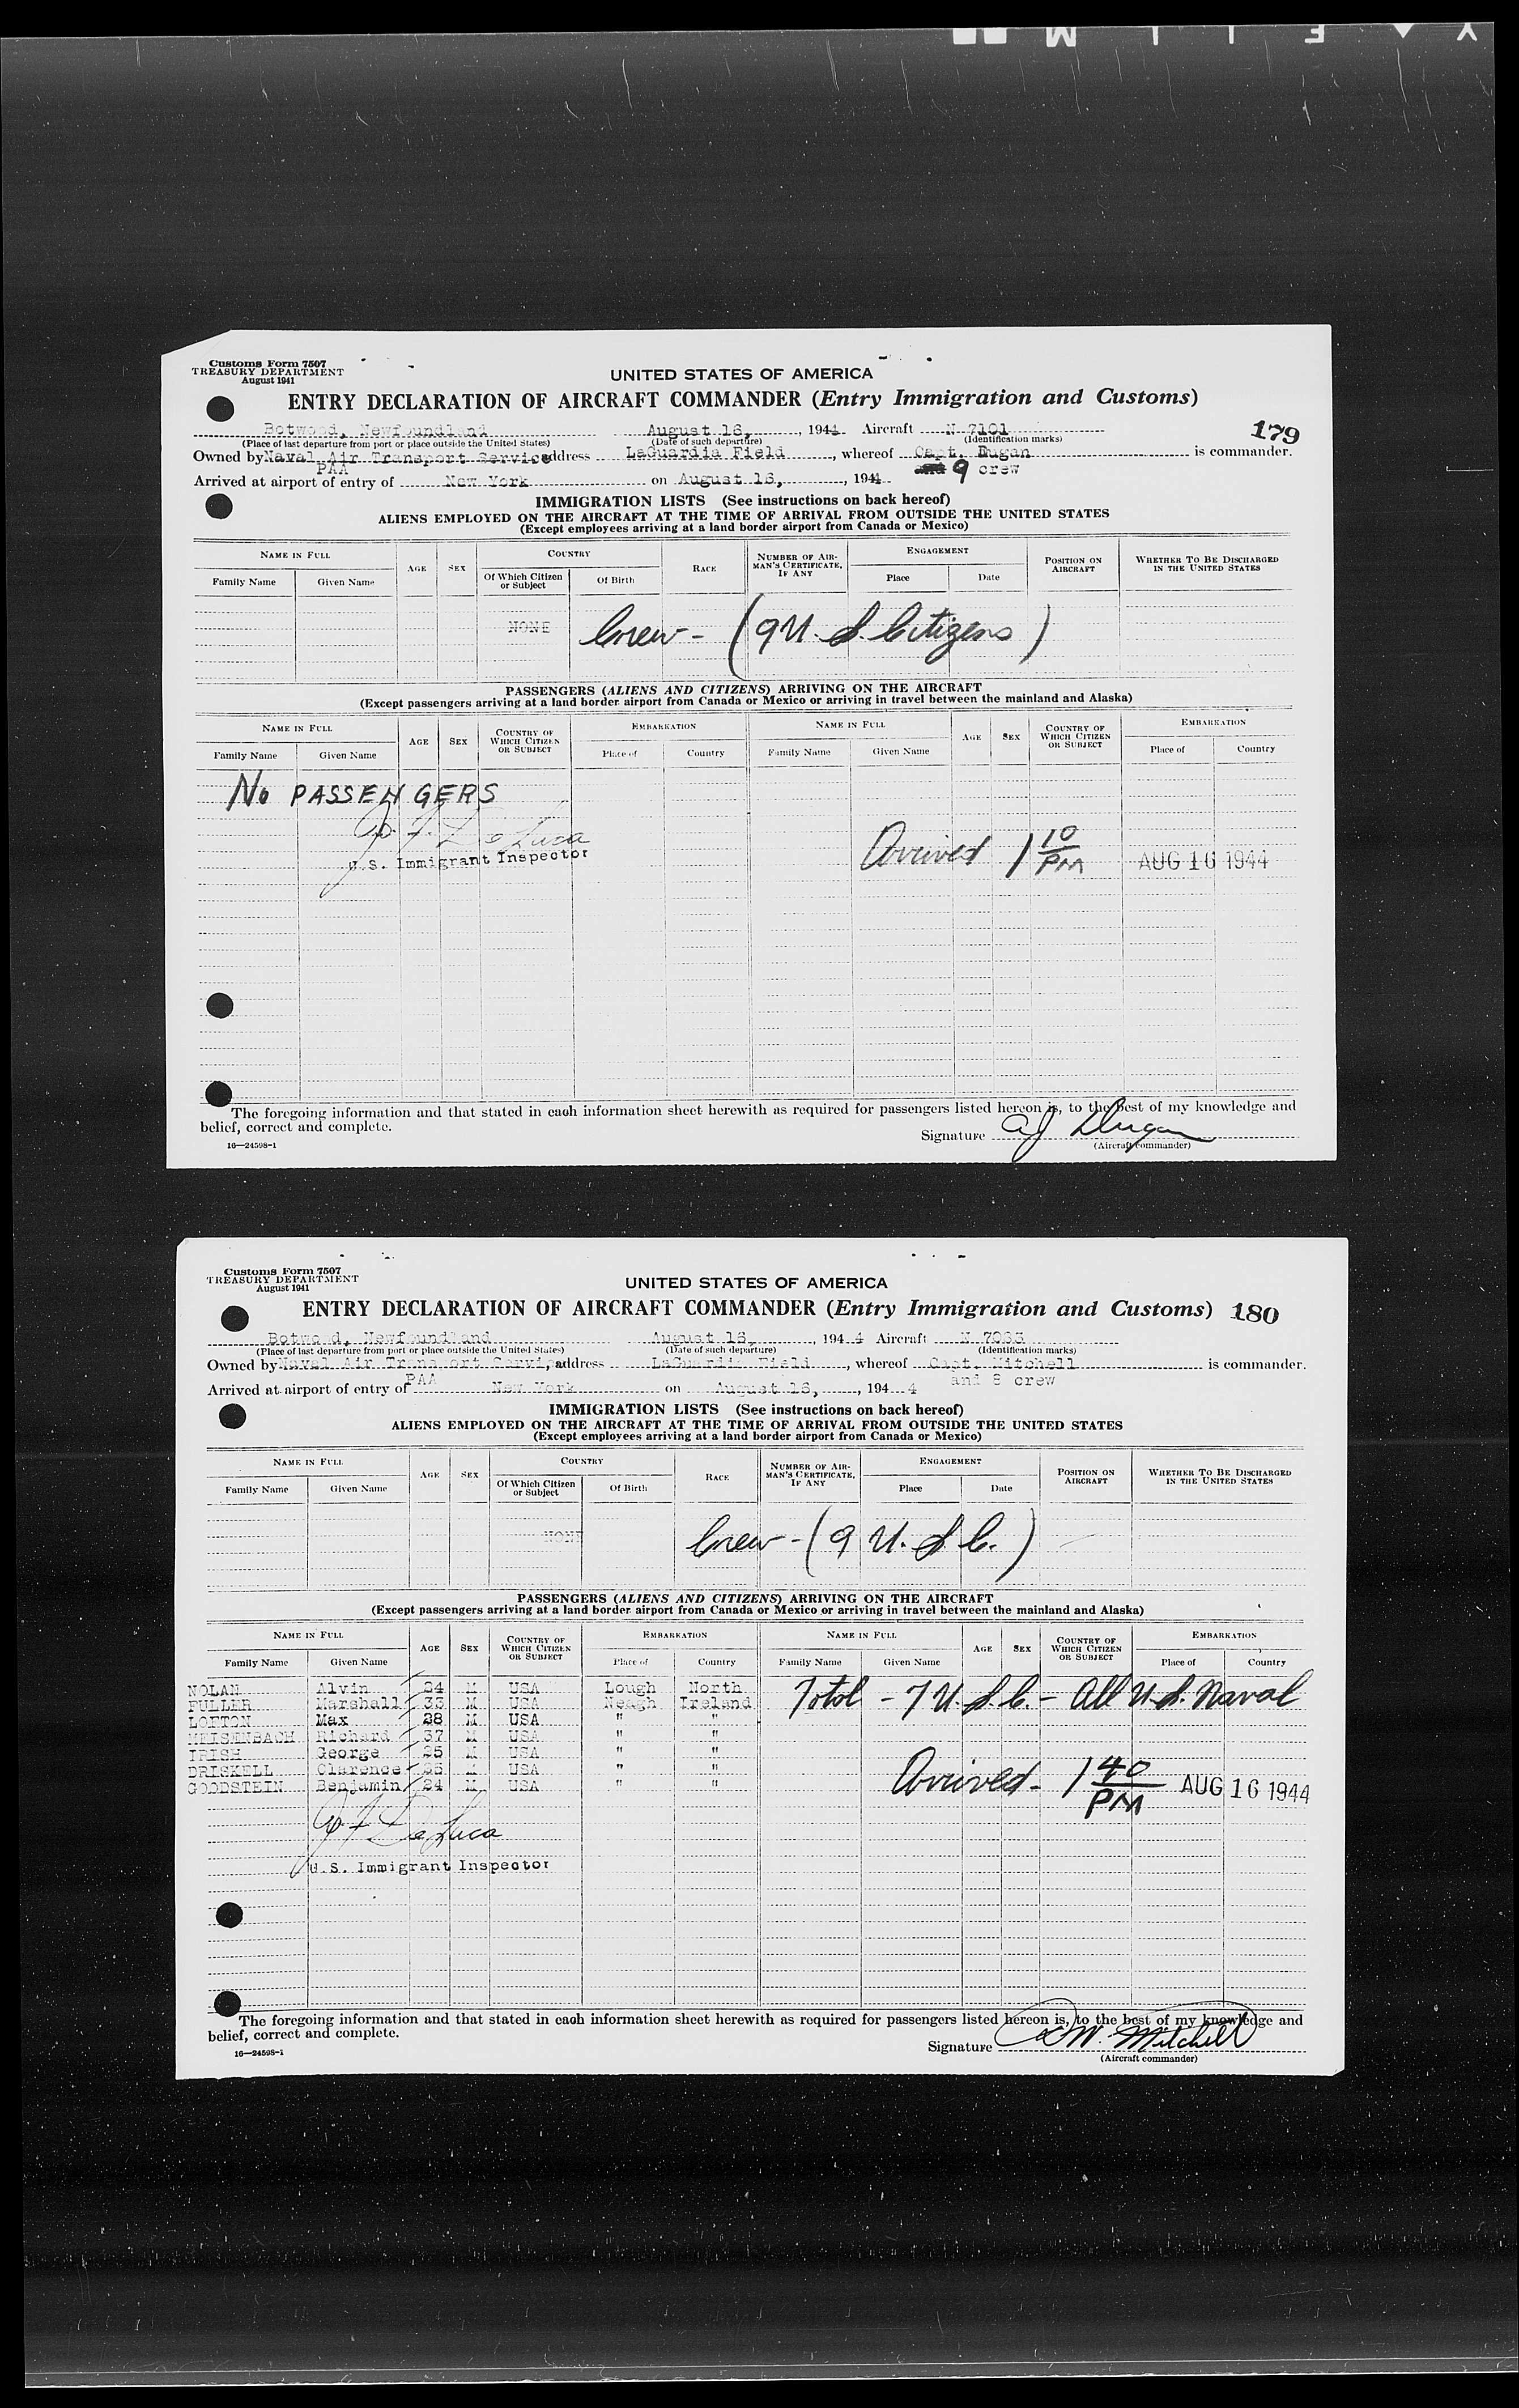 Customs Form 7507
TREASURY DEPARTMENT
August 1941
UNITED STATES OF AMERICA
ENTRY DECLARATION OF AIRCRAFT COMMANDER (Entry Immigration and Customs)
179
Botwood, Newfoundland August 16, 1944 Aircraft N 7101
(Place of last departure from port or place outside the United States) (Date of such departure) (Identification marks)
Owned by Naval Air Transport Service address LaGuardia Field, whereof Capt. Dugan is commander.
PAA 9 crew
Arrived at airport of entry of New York on August 16, 1944
IMMIGRATION LISTS (See instructions on back hereof)
ALIENS EMPLOYED ON THE AIRCRAFT AT THE TIME OF ARRIVAL FROM OUTSIDE THE UNITED STATES
(Except employees arriving at a land border airport from Canada or Mexico)
NAME IN FULL AGE SEX COUNTRY RACE NUMBER OF AIRMAN'S CERTIFICATE, IF ANY ENGAGEMENT POSITION ON AIRCRAFT WHETHER TO BE DISCHARGED IN THE UNITED STATES
Family Name Given Name Of Which Citizen or Subject Of Birth Place Date
NONE Crew - (9 U. S. Citizens)
PASSENGERS (ALIENS AND CITIZENS) ARRIVING ON THE AIRCRAFT
(Except passengers arriving at a land border airport from Canada or Mexico or arriving in travel between the mainland and Alaska)
NAME IN FULL AGE SEX COUNTRY OF WHICH CITIZEN OR SUBJECT EMBARKATION NAME IN FULL AGE SEX COUNTRY OF WHICH CITIZEN OR SUBJECT EMBARKATION
Family Name Given Name Place of Country Family Name Given Name Place of Country
No PASSENGERS
J. F. De Luca
U.S. Immigrant Inspector
Arrived 1 10 PM AUG 16 1944
The foregoing information and that stated in each information sheet herewith as required for passengers listed hereon is, to the best of my knowledge and
belief, correct and complete.
16—24598-1
Signature AJ Dugan
(Aircraft commander)
Customs Form 7507
TREASURY DEPARTMENT
August 1941
UNITED STATES OF AMERICA
ENTRY DECLARATION OF AIRCRAFT COMMANDER (Entry Immigration and Customs) 180
Botwood, Newfoundland August 16, 1944 Aircraft N 7063
(Place of last departure from port or place outside the United States) (Date of such departure) (Identification marks)
Owned by Naval Air Transport Service, address LaGuardia Field, whereof Capt. Mitchell is commander.
PAA and 8 crew
Arrived at airport of entry of New York on August 16, 1944
IMMIGRATION LISTS (See instructions on back hereof)
ALIENS EMPLOYED ON THE AIRCRAFT AT THE TIME OF ARRIVAL FROM OUTSIDE THE UNITED STATES
(Except employees arriving at a land border airport from Canada or Mexico)
NAME IN FULL AGE SEX COUNTRY RACE NUMBER OF AIRMAN'S CERTIFICATE, IF ANY ENGAGEMENT POSITION ON AIRCRAFT WHETHER TO BE DISCHARGED IN THE UNITED STATES
Family Name Given Name Of Which Citizen or Subject Of Birth Place Date
NONE Crew - (9 U. S. C.)
PASSENGERS (ALIENS AND CITIZENS) ARRIVING ON THE AIRCRAFT
(Except passengers arriving at a land border airport from Canada or Mexico or arriving in travel between the mainland and Alaska)
NAME IN FULL AGE SEX COUNTRY OF WHICH CITIZEN OR SUBJECT EMBARKATION NAME IN FULL AGE SEX COUNTRY OF WHICH CITIZEN OR SUBJECT EMBARKATION
Family Name Given Name Place of Country Family Name Given Name Place of Country
NOLAN Alvin 24 M USA Lough North
FULLER Marshall 33 M USA Neagh Ireland
Total - 7 U. S. C. - All U. S. Naval
LOFTON Max 28 M USA " "
MEISENBACH Richard 37 M USA " "
IRISH George 25 M USA " "
DRISKELL Clarence 25 M USA " "
GOODSTEIN Benjamin 24 M USA " "
Arrived - 1 40 PM AUG 16 1944
J F De Luca
U.S. Immigrant Inspector
The foregoing information and that stated in each information sheet herewith as required for passengers listed hereon is, to the best of my knowledge and
belief, correct and complete.
16—24598-1
Signature W. Mitchell
(Aircraft commander)